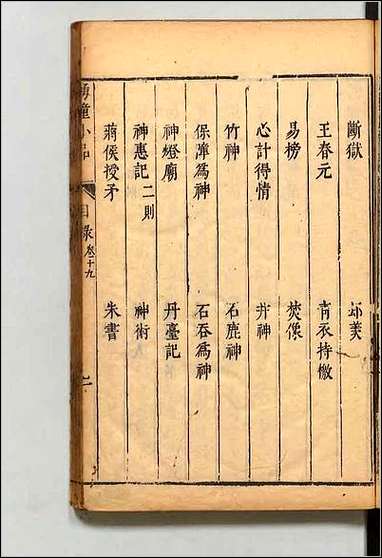 斷獄
王春元 青衣持檄
易榜 焚像
心計得情 井神
竹神 石鹿神
保漳為神 石吞為神
神燈廟 丹臺記
神惠記 二則 神術
蔣侯授矛 朱書
湧幢小品 目錄 卷十九 二